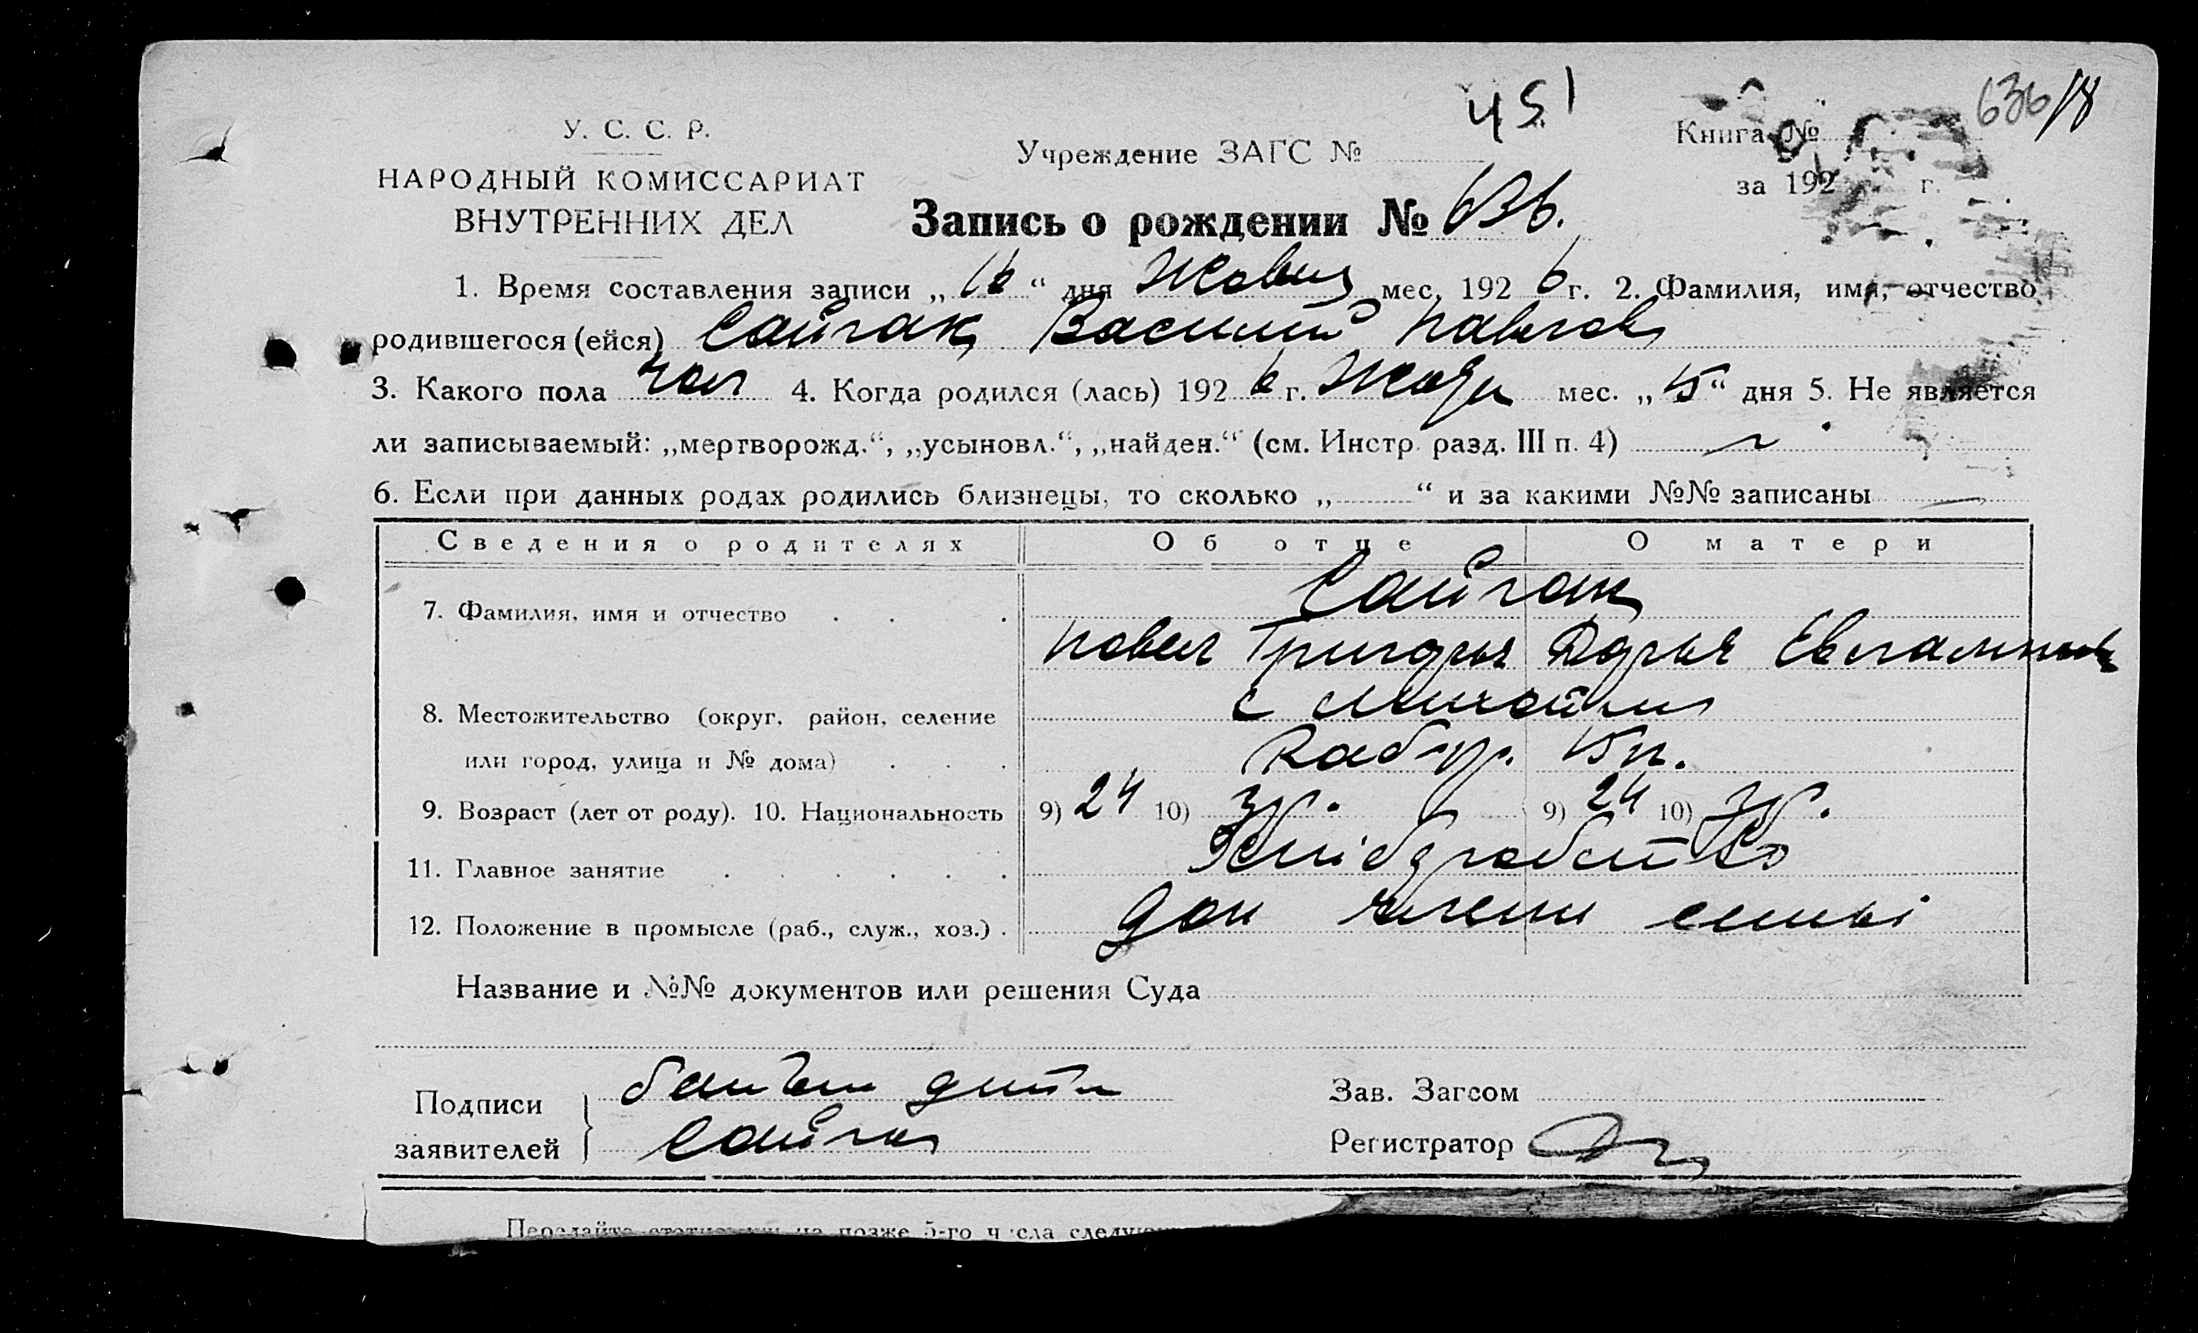 451
636/18
У. С. С. Р.
Учреждение ЗАГС №
Книга №
НАРОДНЫЙ КОМИССАРИАТ
за 192 г.
ВНУТРЕННИХ ДЕЛ
Запись о рождении № 636.
1. Время составления записи „ 16 “ дня Жовт мес. 192 6 г. 2. Фамилия, имя, отчество
родившегося (ейся) Сайгак Василий Павлов
3. Какого пола чол 4. Когда родился (лась) 192 6 г. мес. „ 15 “ дня 5. Не является
ли записываемый: „мертворожд.“, „усыновл.“, „найден.“ (см. Инстр. разд. III п. 4)
6. Если при данных родах родились близнецы, то сколько „ “ и за какими №№ записаны
Сведения о родителях Об отце О матери
Сайгак
7. Фамилия, имя и отчество
Павел Григорья Дарья Евлампиев
8. Местожительство (округ, район, селение
или город, улица и № дома)
9. Возраст (лет от роду). 10. Национальность 9) 24 10) укр. 9) 24 10) укр.
11. Главное занятие Хліборобство
12. Положение в промысле (раб., служ., хоз.) члени семьі
Название и №№ документов или решения Суда
Подписи
заявителей
батько дитя
Сайгак
Зав. Загсом
Регистратор
Передайте не позже 5-го числа